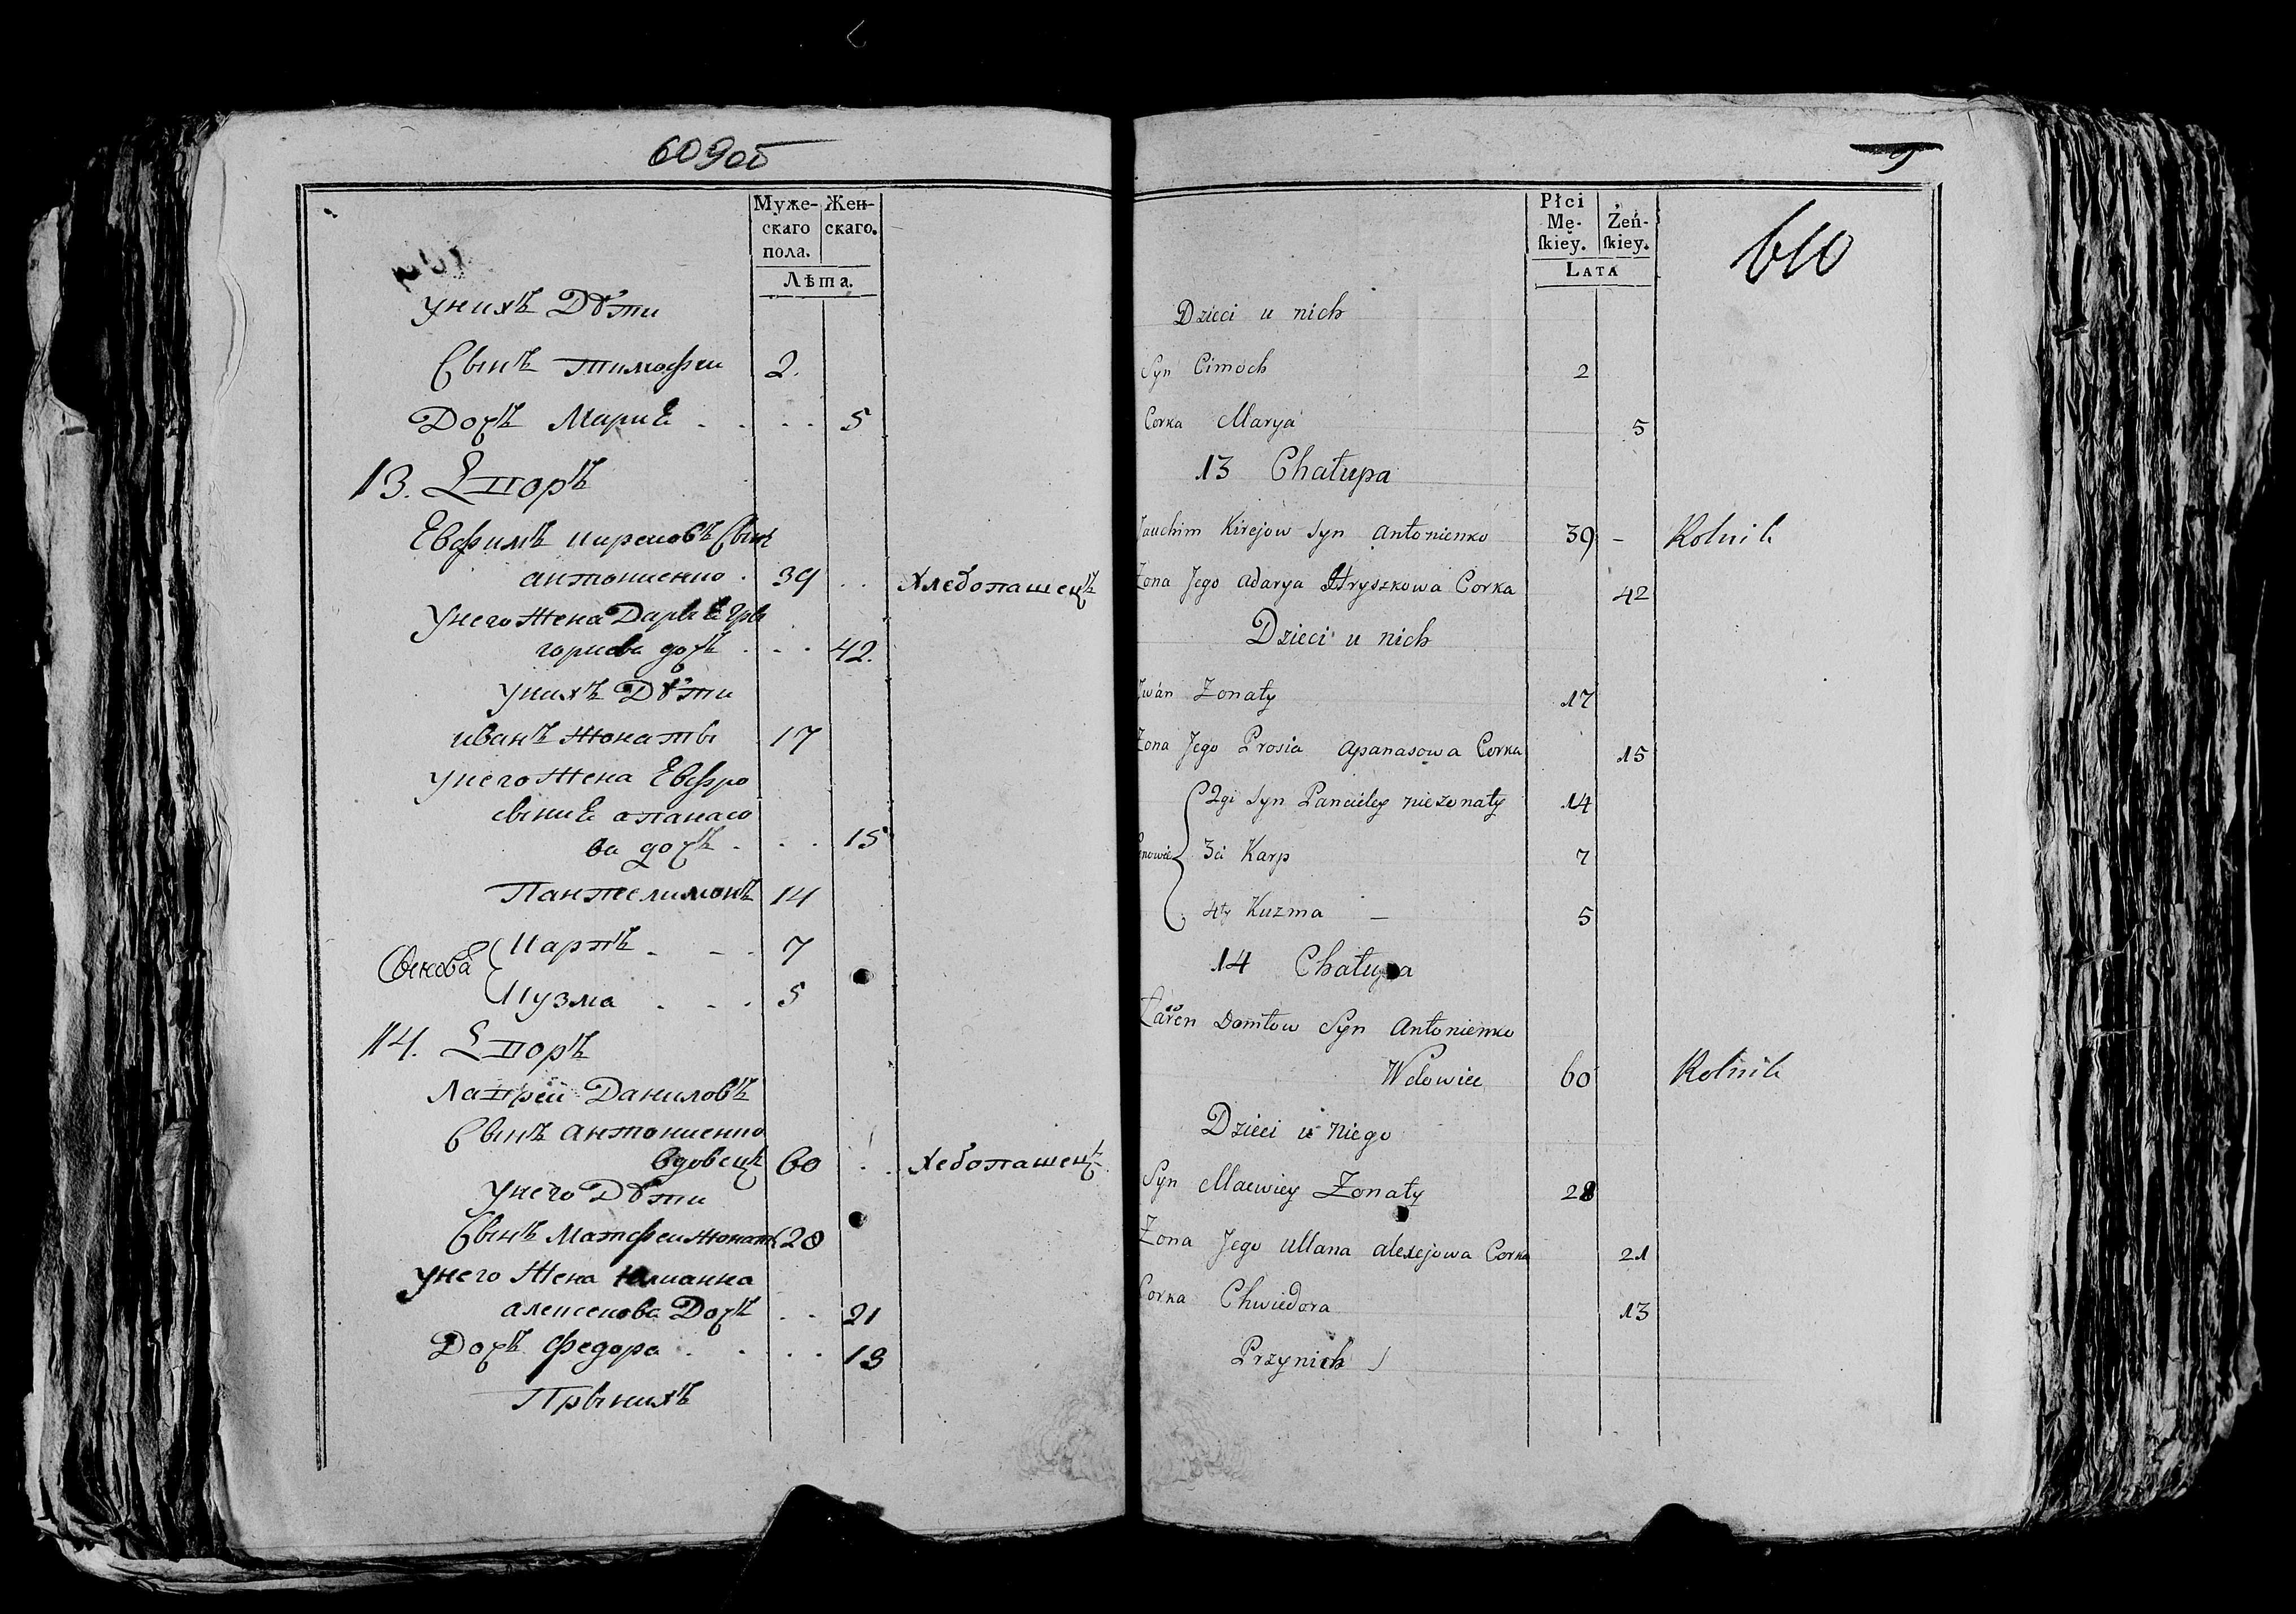 609об
Муже-
скаго
пола.
Жен-
скаго.
Лѣта.
унихъ Дѣти
Сынъ тимофеи 2.
Дочь Мариѣ 5
13. Двор
Евфимъ киреювъ Сынъ
антониенко 39 Хлебопашецъ
Унего Жена Дарьѣ Гри
гориева дочъ 42.
унихъ Дѣти
иванъ жонаты 17
унего Жена Евфро
сыниѣ апанасо
ва дочъ 15
Пантелимонъ 14
Сынова
Карпъ 7
Кузма 5
14. Двор
Даниловъ
Сынъ антониенко
вдовецъ 60 Хебопашецъ
унего Дѣти
Сынъ Матфеи жонаты 28
унего Жена Юлианна
алексеюва Дочъ 21
Дочъ Федора 13
Прынихъ
9
610
Płci
Mę-
ſkiey.
Żeń-
ſkiey.
LATA
Dzieci u nich
Syn Cimoch 2
Corka Marya 5
13 Chałupa
Jauchim Kirejow Syn Antonienko 39 – Rolnik
Zona Jego adarya Hryszkowa Corka 42
Dzieci u nich
Jwan Zonaty 17
Zona Jego Prosia apanasowa Corka 15
2gi Syn Pancieley niezonaty 14
3ci Karp 7
4ty Kuzma – 5
14 Chałupa
Syn Antonienko
Wdowiec 60 Rolnik
Dzieci u niego
Syn Maewiey Zonaty 28
Zona Jego Ullana alexejowa Corka 21
Corka Chwiedora 13
Przynich